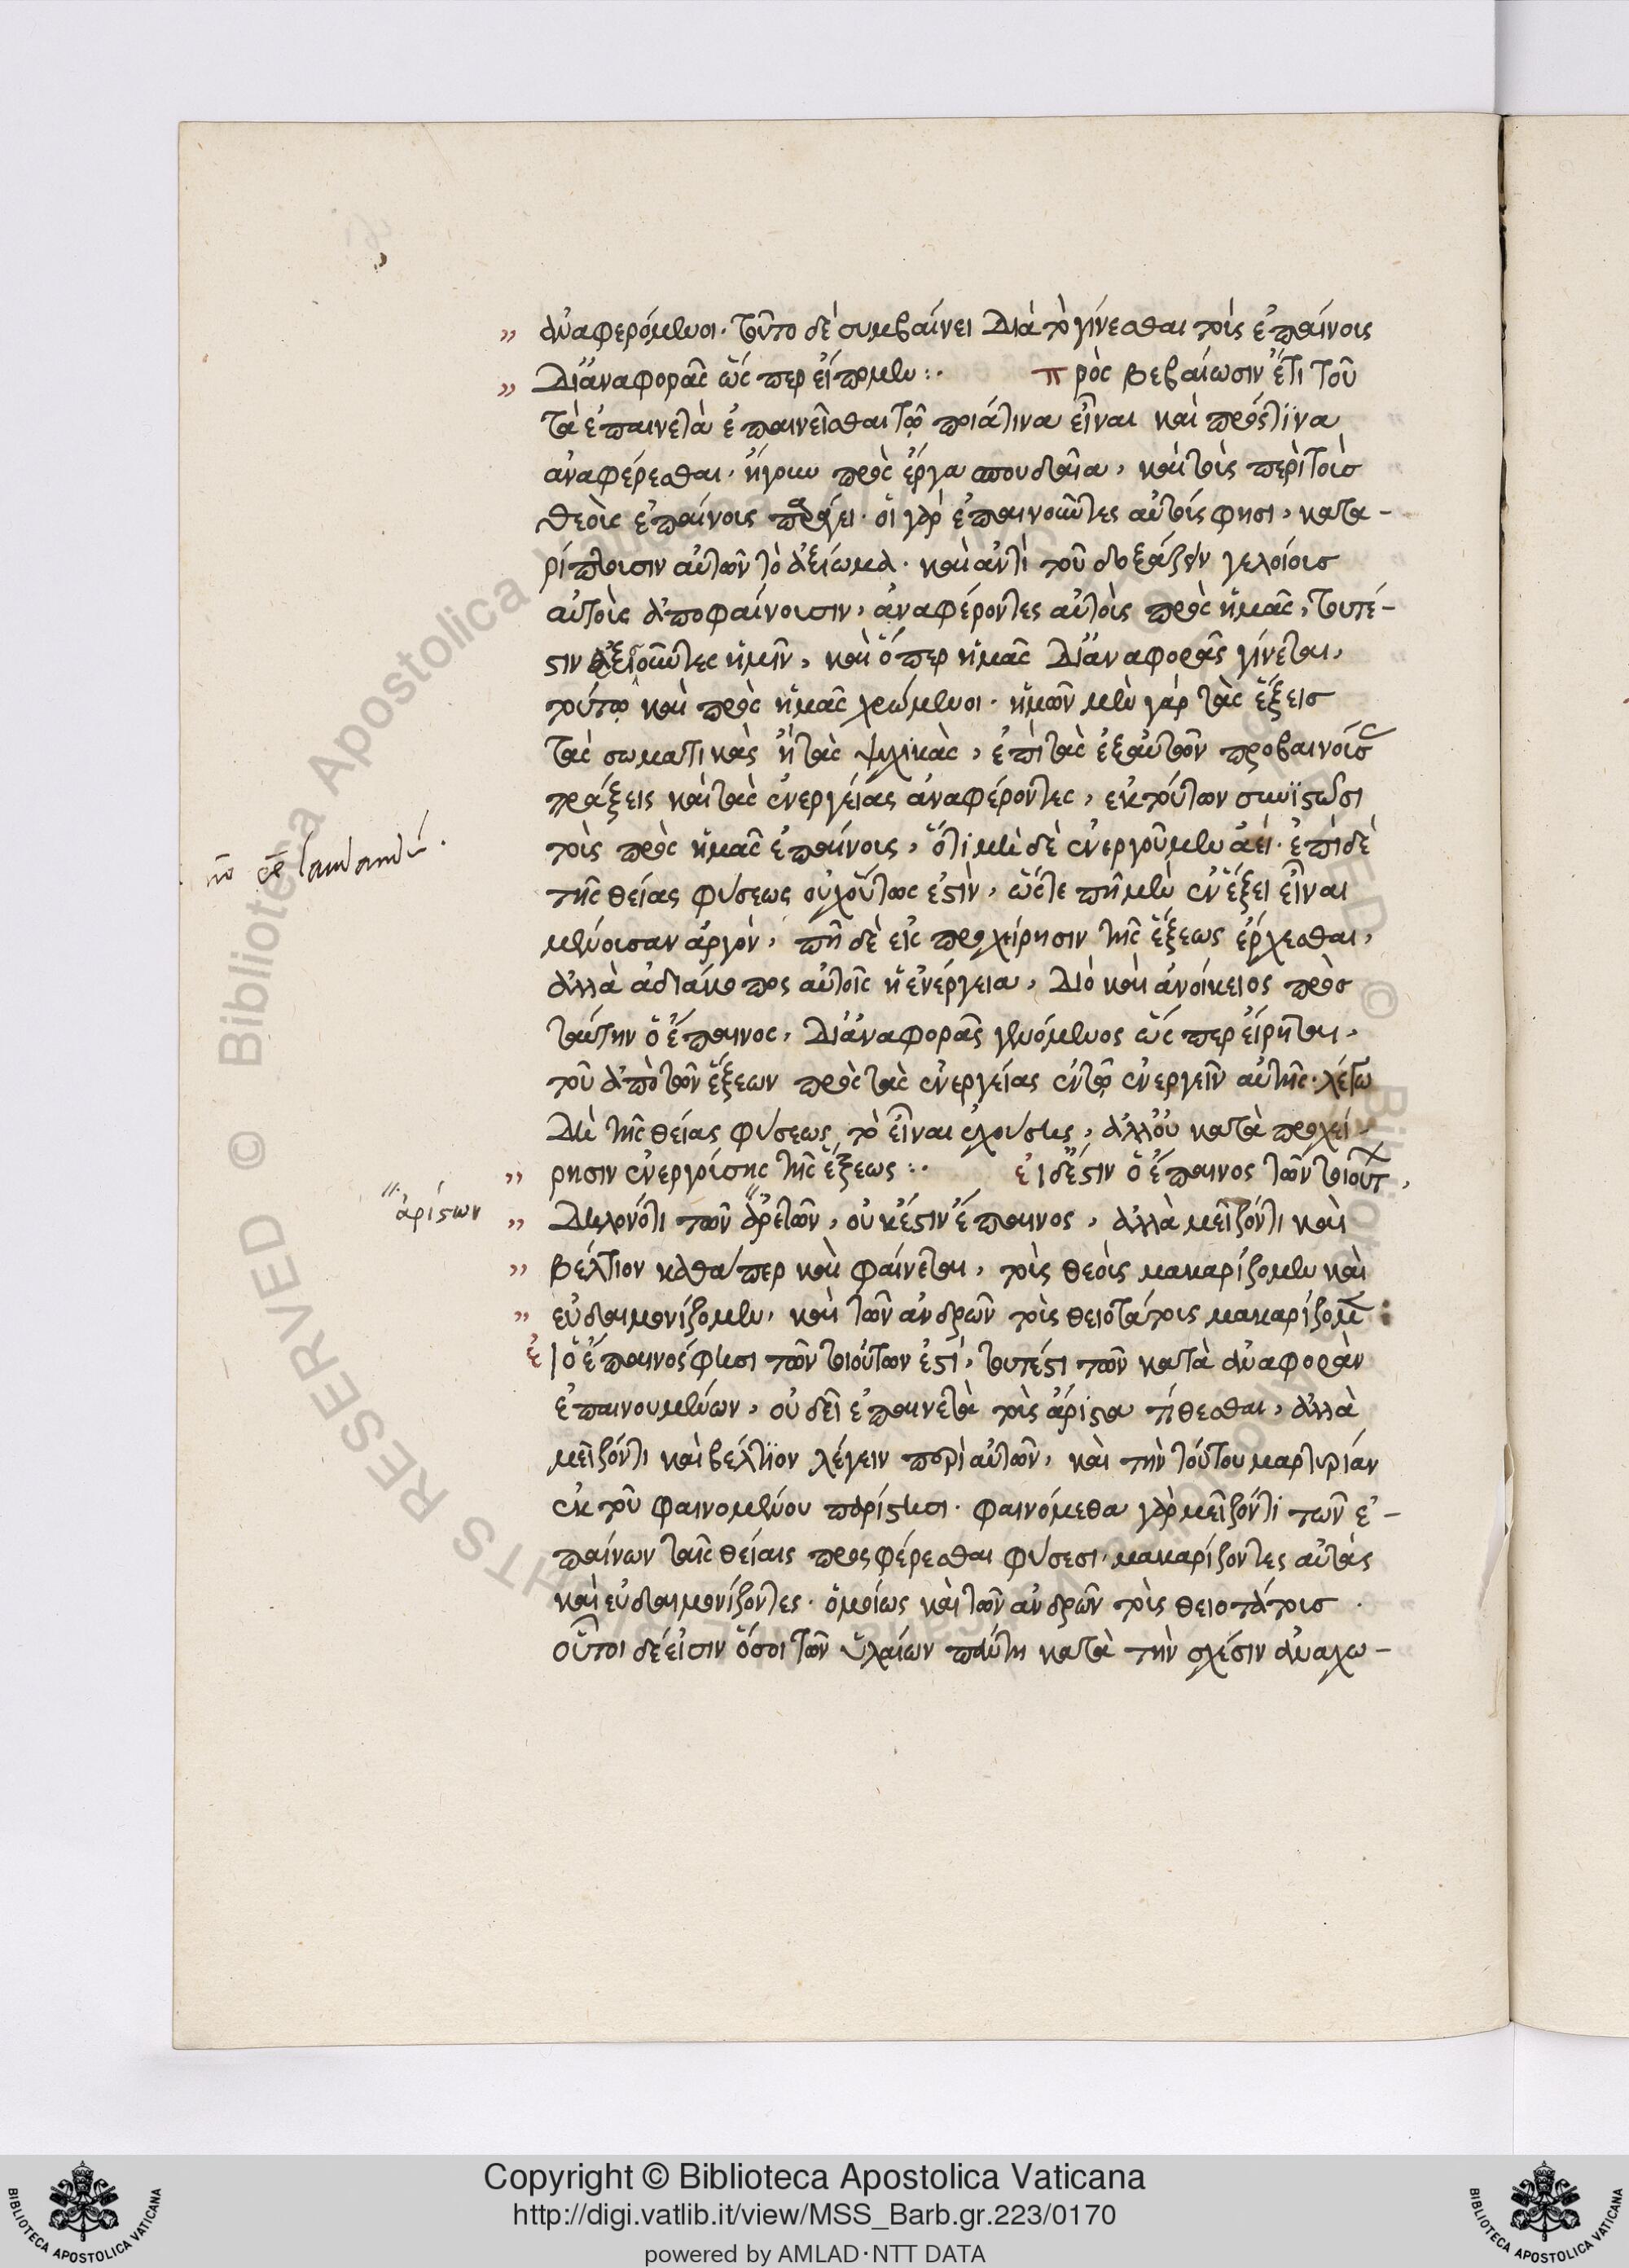 ἀναφερόμενοι. τοῦτο δὲ συμβαίνει διὰ τὸ γίνεσθαι τοὺς ἐπαίνους
δι' ἀναφορᾶς ὥς περ εἴπομεν :. πρὸς βεβαίωσιν ἔτι τοῦ
τὰ ἐπαινετὰ ἐπαινεῖσθαι τῷ ποιάτινα εἶναι καὶ πρός τινα
ἀναφέρεσθαι. ἤγουν πρὸς ἔργα σπουδαῖα, καὶ τοὺς περὶ τοὺς
θεοὺς ἐπαίνους παράγει. οἱ γὰρ ἐπαινοῦντες αὐτούς φησι, κατα-
ρίπτουσιν αὐτῶν τὸ ἀξίωμα. καὶ ἀντὶ τοῦ δοξάζειν γελοίους
αὐτοὺς ἀποφαίνουσιν, ἀναφέροντες αὐτοὺς πρὸς ἡμᾶς, τουτέ-
στιν ἐξισοῦντες ἡμῖν, καὶ ὅπερ ἡμᾶς δι' ἀναφορᾶς γίνεται,
τούτῳ καὶ πρὸς ἡμᾶς χρώμενοι. ἡμῶν μὲν γὰρ τὰς ἕξεις
τὰς σωματικὰς ἢ τὰς ψυχικὰς, ἐπὶ τὰς ἐξ αὐτῶν προβαινούσ
πράξεις καὶ τὰς ἐνεργείας ἀναφέροντες, ἐκ τούτων συνιστῶσι
τοὺς πρὸς ἡμᾶς ἐπαίνους, ὅτι μὴ δὲ ἐνεργοῦμεν ἀεί. ἐπὶ δὲ
τῆς θείας φύσεως οὐχ οὕτως ἐστὶν, ὥς τε πῆ μὲν ἐν ἕξει εἶναι
μένουσαν ἀργὸν, πῆ δὲ εἰς προχείρησιν τῆς ἕξεως ἔρχεσθαι,
ἀλλὰ ἀδιάκοπος αὐτοῖς ἡ ἐνέργεια, διό καὶ ἀνοίκειος πρὸς
ταύτην ὁ ἔπαινος, δι' ἀναφορᾶς γενόμενος ὥς περ εἴρηται,
τοῦ ἀπὸ τῶν ἕξεων πρὸς τὰς ἐνεργείας ἐν τῷ ἐνεργεῖν αὐτῆς. λέγω
δὴ τῆς θείας φύσεως τὸ εἶναι ἐχούσης, ἀλλ' οὐ κατὰ προχεί-
ρησιν ἐνεργούσης τῆς ἕξεως :. εἰ δέ ἐστιν ὁ ἔπαινος τῶν τοιούτ,
δῆλον ὅτι τῶν ἀρετῶν, οὐκ ἔστιν ἔπαινος, ἀλλὰ μεῖζόν τι καὶ
ἀρίστων
βέλτιον καθάπερ καὶ φαίνεται, τοὺς θεοὺς μακαρίζομεν καὶ
εὐδαιμονίζομεν, καὶ τῶν ἀνδρῶν τοὺς θειοτάτους μακαρίζομ :
εἰ ὁ ἔπαινός φησι τῶν τοιούτων ἐστὶ, τουτέστι τῶν κατὰ ἀναφορὰν
ἐπαινουμένων, οὐ δεῖ ἐπαινετὰ τοὺς ἄριστα τίθεσθαι, ἀλλὰ
μεῖζόν τι καὶ βέλτιον λέγειν περὶ αὐτῶν, καὶ τὴν τούτου μαρτυρίαν
ἐκ τοῦ φαινομένου παρίστησι. φαινόμεθα γὰρ μεῖζόν τι τῶν ἐ-
παίνων ταῖς θείαις προσφέρεσθαι φύσεσι, μακαρίζοντες αὐτὰς
καὶ εὐδαιμονίζοντες. ὁμοίως καὶ τῶν ἀνδρῶν τοὺς θειοτάτους.
οὗτοι δέ εἰσιν ὅσοι τῶν ὑλαίων πάντη κατὰ τὴν σχέσιν ἀναχω-
Copyright © Biblioteca Apostolica Vaticana
http://digi.vatlib.it/view/MSS_Barb.gr.223/0170
powered by AMLAD·NTT DATA